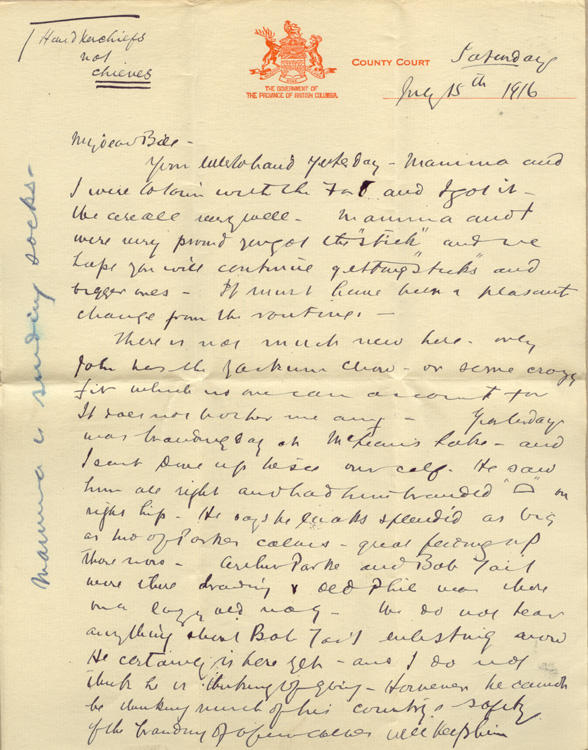 Handkerchiefs
not
chieves
THE GOVERNMENT OF
THE PROVINCE OF BRITISH COLUMBIA.
COUNTY COURT
Saturday
July 15th 1916
My dear Bill -
Your to hand yesterday - Mamma and
I were with the and I got it -
We are all very well - Mamma and I
were very proud you got the "stick" and we
hope you will continue getting "sticks" and
bigger ones - It must have been a pleasant
change from the routine -
There is not much new here - only
John has the - or some crazy
fit which no one can account for
It does not bother me any - Yesterday
was branding day at McLean's Lake - and
I sent Dave up to see our calf. He saw
him all right and had him branded on
right hip - He says he looks splendid as big
as two of Parker calves - great feeding up
there now - Arthur Parke and Bob Tait
were there branding & old Phil was there
on a lazy old nag - We do not hear
anything about Bob Tait enlisting now
He certainly is here yet - and I do not
think he is thinking of going - However he cannot
be thinking much of his country's safety
if the branding of a few calves will keep him
Mamma is sending socks -